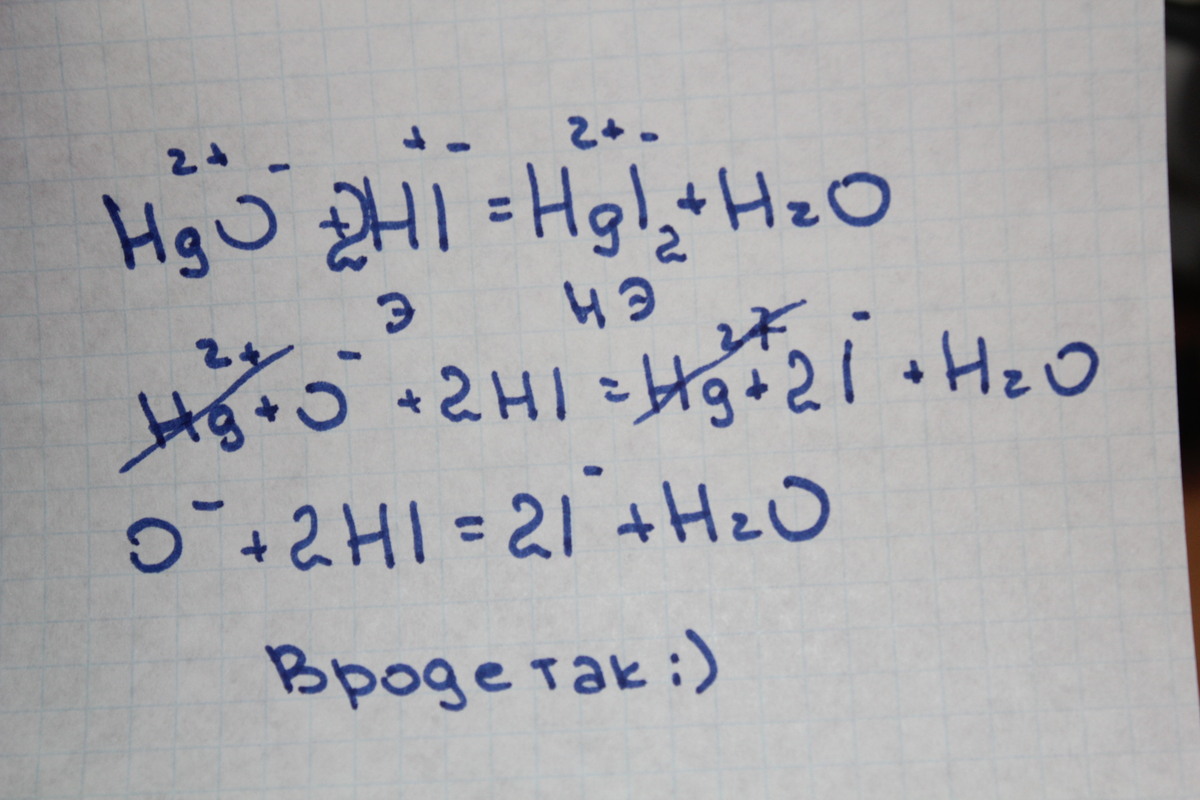 2+ - + - 2+ -
HgO + 2HI = HgI₂ + H₂O
Э НЭ
2+ - 2+ -
Hg + O + 2HI = Hg + 2I + H₂O
O⁻ + 2HI = 2I⁻ + H₂O
Вроде так :)